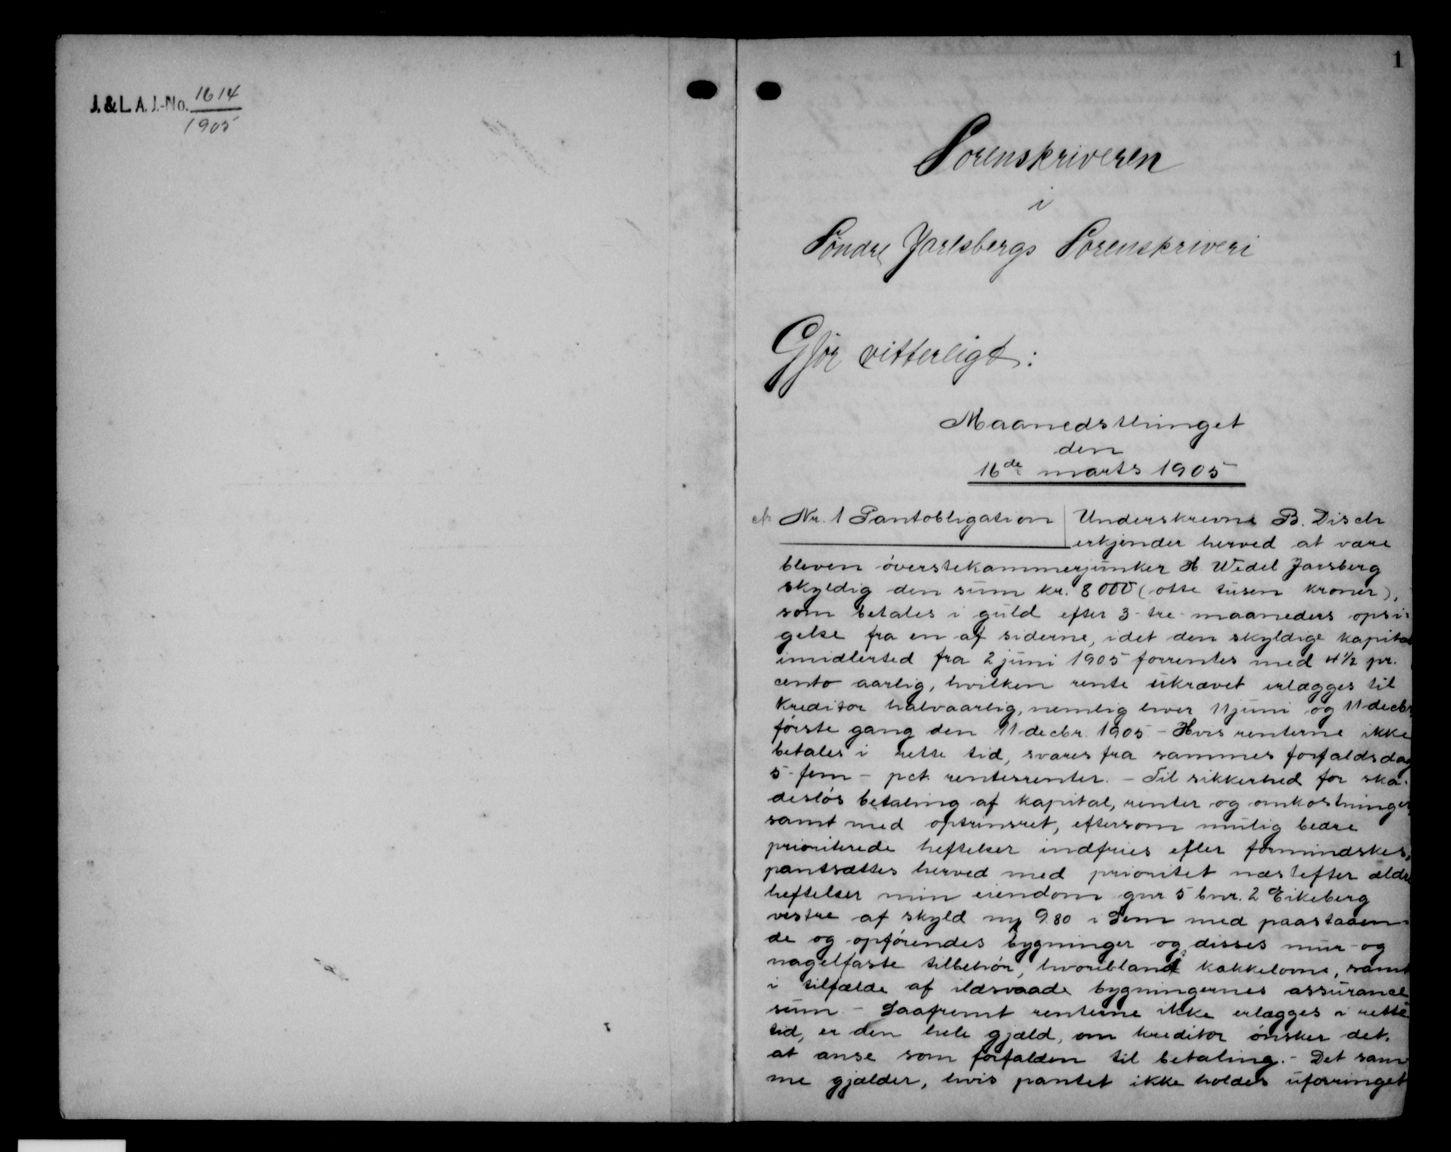 J. & L. A. J.-No. 1614
1905
1
Sorenskriveren
i
Søndre Jarlsbergs Sorenskriveri
Gjør vitterligt:
Maanedsthinget
den
16de marts 1905
Nr. 1 Pantobligation Underskrevne B. Disch
erkjender herved at være
bleven överstekammerjunker H Wedel Jarsberg
skyldig den sum kr. 8000 (otte tusen kroner),
som betales i guld efter 3 - tre - maaneders opsi-
gelse fra en af siderne, idet den skyldige kapital
imidlertid fra 2 juni 1905 forrentes med 4½ pr.
cento aarlig, hvilken rente ukrævet erlægges til
kreditor halvaarlig, nemlig hver 11 juni og 11 decbr.
første gang den 11 decbr. 1905 - Hvis renterne ikke
betales i rette tid, svares fra sammes forfaldsdag
5 - fem - pct. rentesrenter. - Til sikkerhed for ska-
desløs betaling af kapital, renter og omkostninger
samt med optrinsret, eftersom mulig bedre
prioriterede heftelser indfries eller formindskes,
pantsættes herved med prioritet næstefter ældre
heftelser min eiendom gnr 5 bnr. 2 Eikeberg
vestre af skyld my 9.80 i Sem med paastaaen-
de og opførendes bygninger og disses mur- og
nagelfaste tilbehør, hvoriblandt kakkelovne, samt
i tilfælde af ildsvaade bygningernes assurance
sum - Saafremt renterne ikke erlægges i rette
tid, er den hele gjæld, om kreditor ønsker det,
at anse som forfalden til betaling. - Det sam-
me gjælder, hvis pantet ikke holdes uforringet